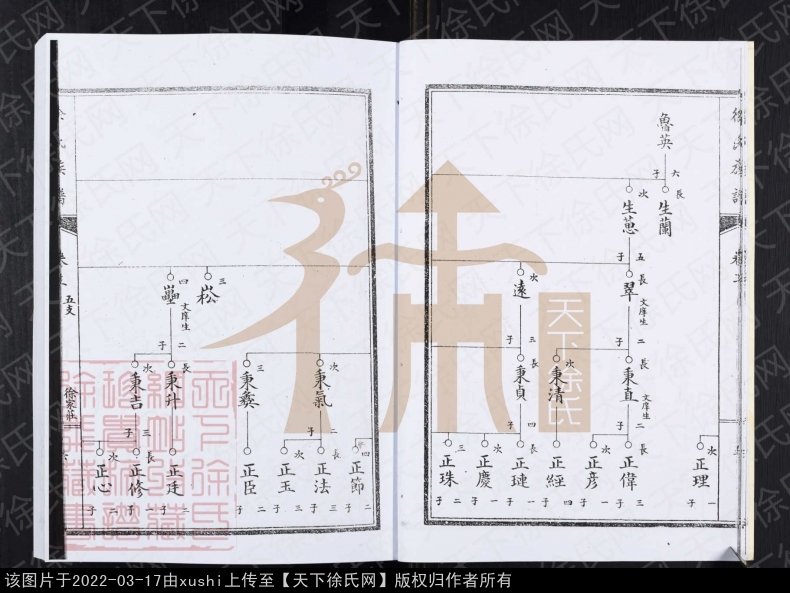 徐氏族譜
魯英
六子
長 生蘭
次 生蒽
五子
長 翠 文庠生
次 遠
二子
三子
長 秉直 文庠生
次 秉清
長 秉貞
二子
四子
正理 一子
長 正偉 三子
次 正彦 一子
正經 四子
長 正璉 一子
次 正慶 一子
三 正珠 二子
三 崧
四 壘 文庠生
二子
次 秉氣
三 秉彝
長 秉升
次 秉吉
二子
三子
四 正節 二子
長 正法 三子
次 正玉 二子
正臣 二子
正廷 三子
長 正修 一子
次 正心 二子
徐氏族譜
五支
徐家莊
天下徐氏
天下徐氏网
该图片于2022-03-17由xushi上传至【天下徐氏网】版权归作者所有